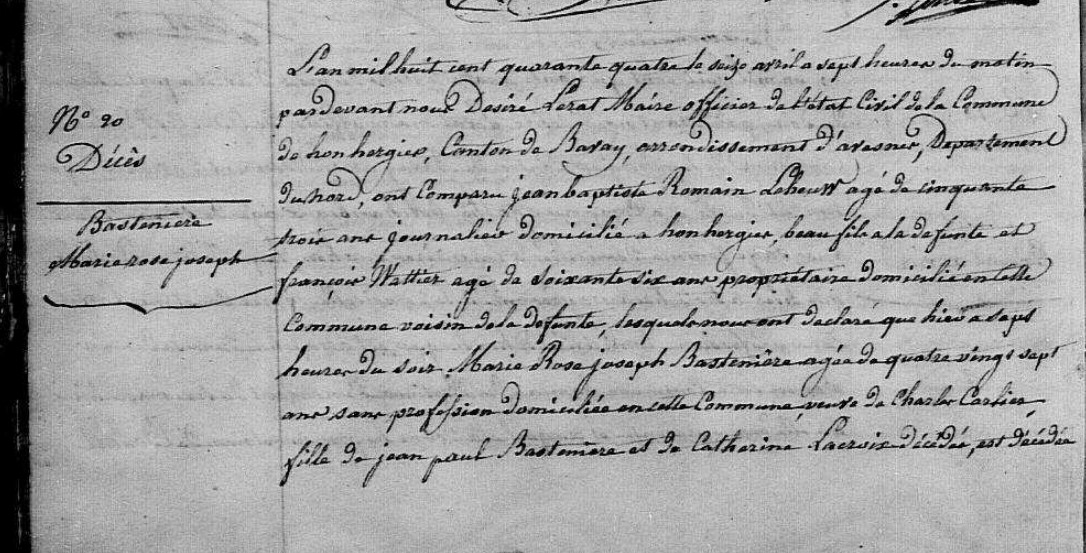 N° 20
Décès
Bastenière
Marie rose joseph
L'an mil huit cent quarante quatre le seize avril a sept heures du matin
pardevant nous Desiré Lerat Maire officier de l'état Civil de la Commune
de honhergies, Canton de Bavay, arrondissement d'avesnes, Departement
du nord, ont Comparu jean baptiste Romain Leheuw agé de cinquante
trois ans journalier domicilié a honhergies, beau fils a la defunte et
françois Wattier agé de soixante six ans propriétaire domicilié en cette
Commune voisin de la defunte, lesquels nous ont declaré que hier a sept
heures du soir Marie Rose joseph Bastenière agée de quatre vingt sept
ans sans profession domiciliée en cette Commune, veuve de Charles Cartier
fille de jean paul Bastenière et de Catherine Lacroix décédée, est décédée